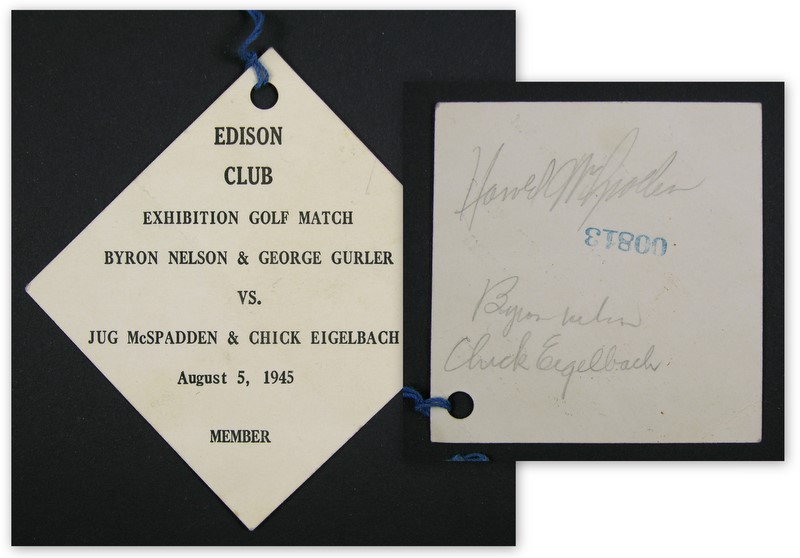 EDISON
CLUB
EXHIBITION GOLF MATCH
BYRON NELSON & GEORGE GURLER
VS.
JUG McSPADDEN & CHICK EIGELBACH
August 5, 1945
MEMBER
Harold McSpaden
00813
Byron Nelson
Chick Eigelbach.